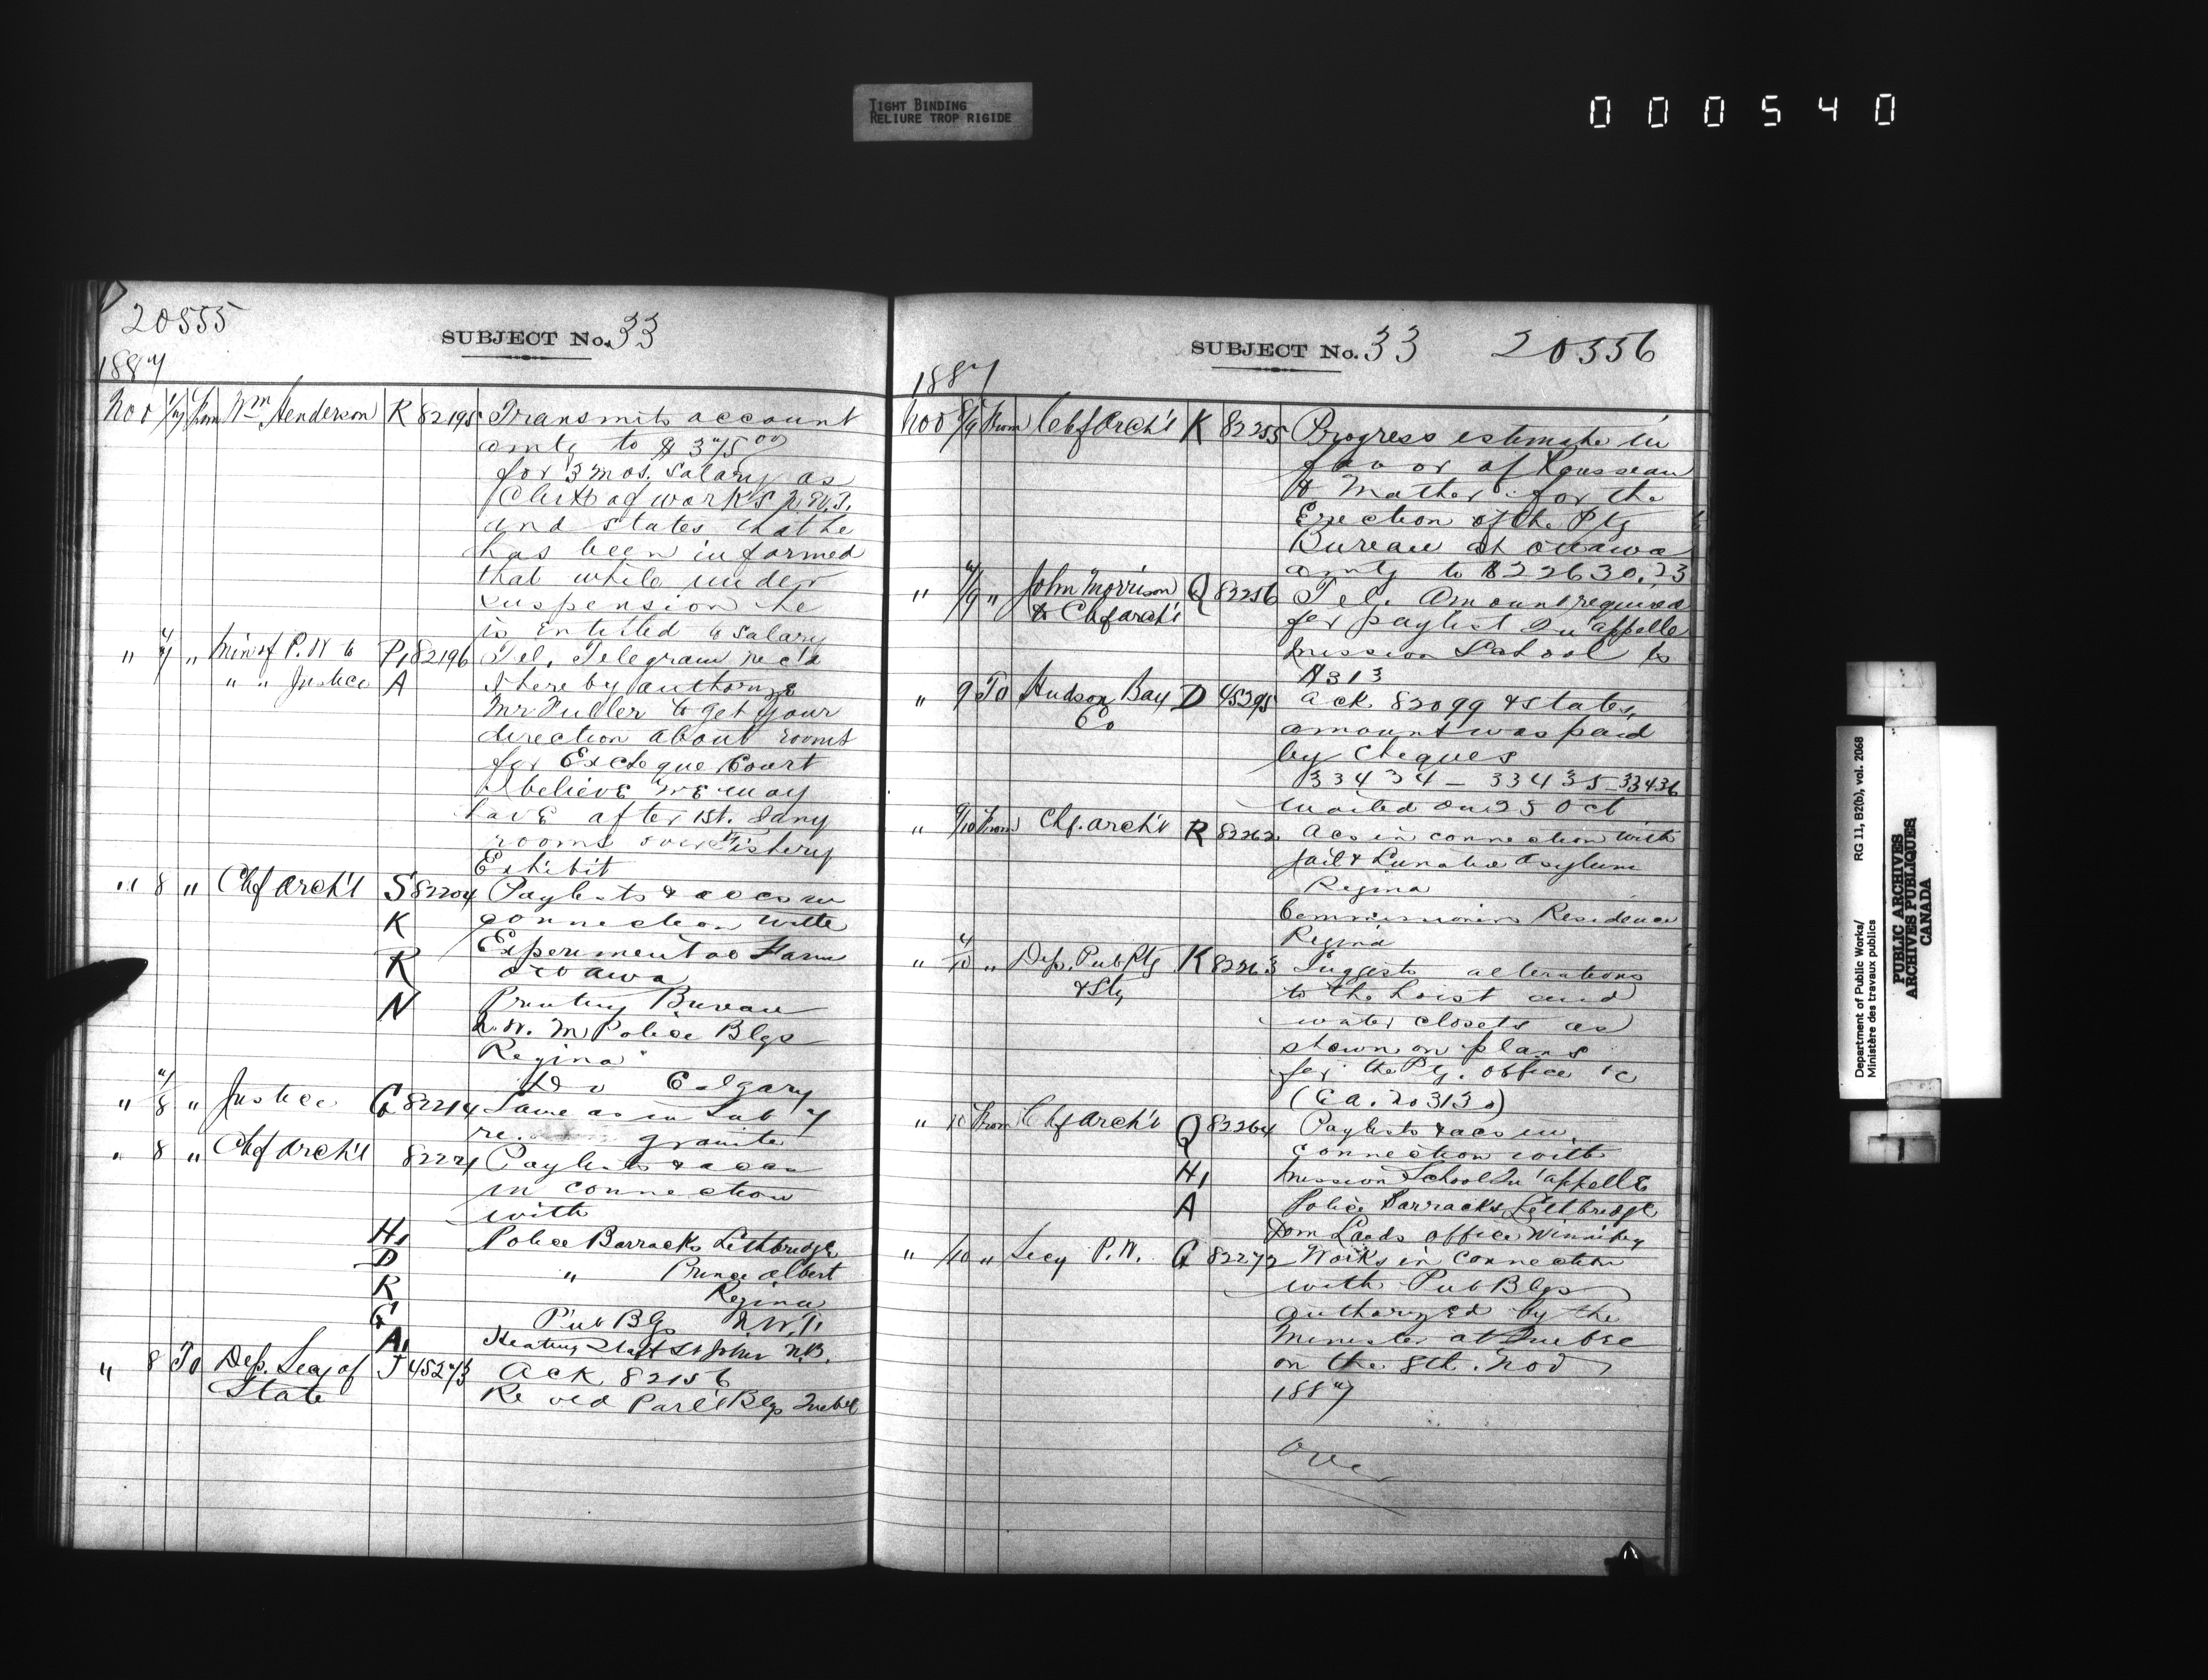 TIGHT BINDING
RELIURE TROP RIGIDE
000540
20555
SUBJECT No. 33
1887
Nov 1/7 From Wm Henderson R 82195 Transmits account
amtg to $375.00
for 3 mos. salary as
Clerk of works N.W.T.
and states that he
has been informed
that while under
suspension he
is entitled to salary
" 7 " Min of P.W to P1 82196 Tel. Telegram rec'd
" " Justice A I hereby authorize
Mr Fuller to get your
direction about rooms
for Excheque Court
I believe we may
have after 1st. Jany
rooms over Fishery
Exhibit
" 8 " Chf Arch't S 82204 Paylists & accs in
K connection with
Experimental Farm
R Ottawa
N Printing Bureau
N.W. M Police Blgs
Regina
Do Calgary
" 4/8 " Justice G 82214 Same as in Sub 7
re. granite
" 8 " Chf Arch't 82221 Paylists & accs
in connection
with
H1 Police Barracks Lethbridge
D " Prince Albert
R Regina
G Pub Blgs N.W.T.
A1 Heating Staff St John N.B.
" 8 To Dep. Secy of J 45273 Ack 82156
State Re old Parl't Blgs Quebec
SUBJECT No. 33 20556
1887
Nov 8/9 From Chf Arch't K 82255 Progress estimate in
favor of Rousseau
& Mather for the
Erection of the Ptg
Bureau at Ottawa
amtg to $22630.23
" 4/9 " John Morrison Q 82256 Tel. Amount required
to Chf Arch't for paylist Qu'appelle
Mission School is
$313
" 9 To Hudson Bay D 45295 Ack. 82099 & states,
Co amount was paid
by Cheques
33434 – 33435 – 33436
mailed on 25 Oct
" 9/10 From Chf. Arch't R 82262 Acs in connection with
Jail & Lunatic Asylum
Regina
Commissioners Residence
Regina
" 4/10 " Dep. Pub Ptg K 82263 Suggests alterations
& Sty to the hoist and
water closets as
shown on plans
for the Ptg. office &c
(Ea. 20313)
" 10 From Chf Arch't Q 82264 Paylists & acs in
connection with
H1 Mission School Qu'appelle
A Police Barracks Lethbridge
Dom Lands office Winnipeg
" /10 " Secy P.W. G 82272 Works in connection
with Pub Blgs
authorized by the
Minister at Quebec
on the 8th. Nov
1887
Over
Department of Public Works/ RG 11, B2(b), vol. 2068
Ministère des travaux publics
PUBLIC ARCHIVES
ARCHIVES PUBLIQUES
CANADA